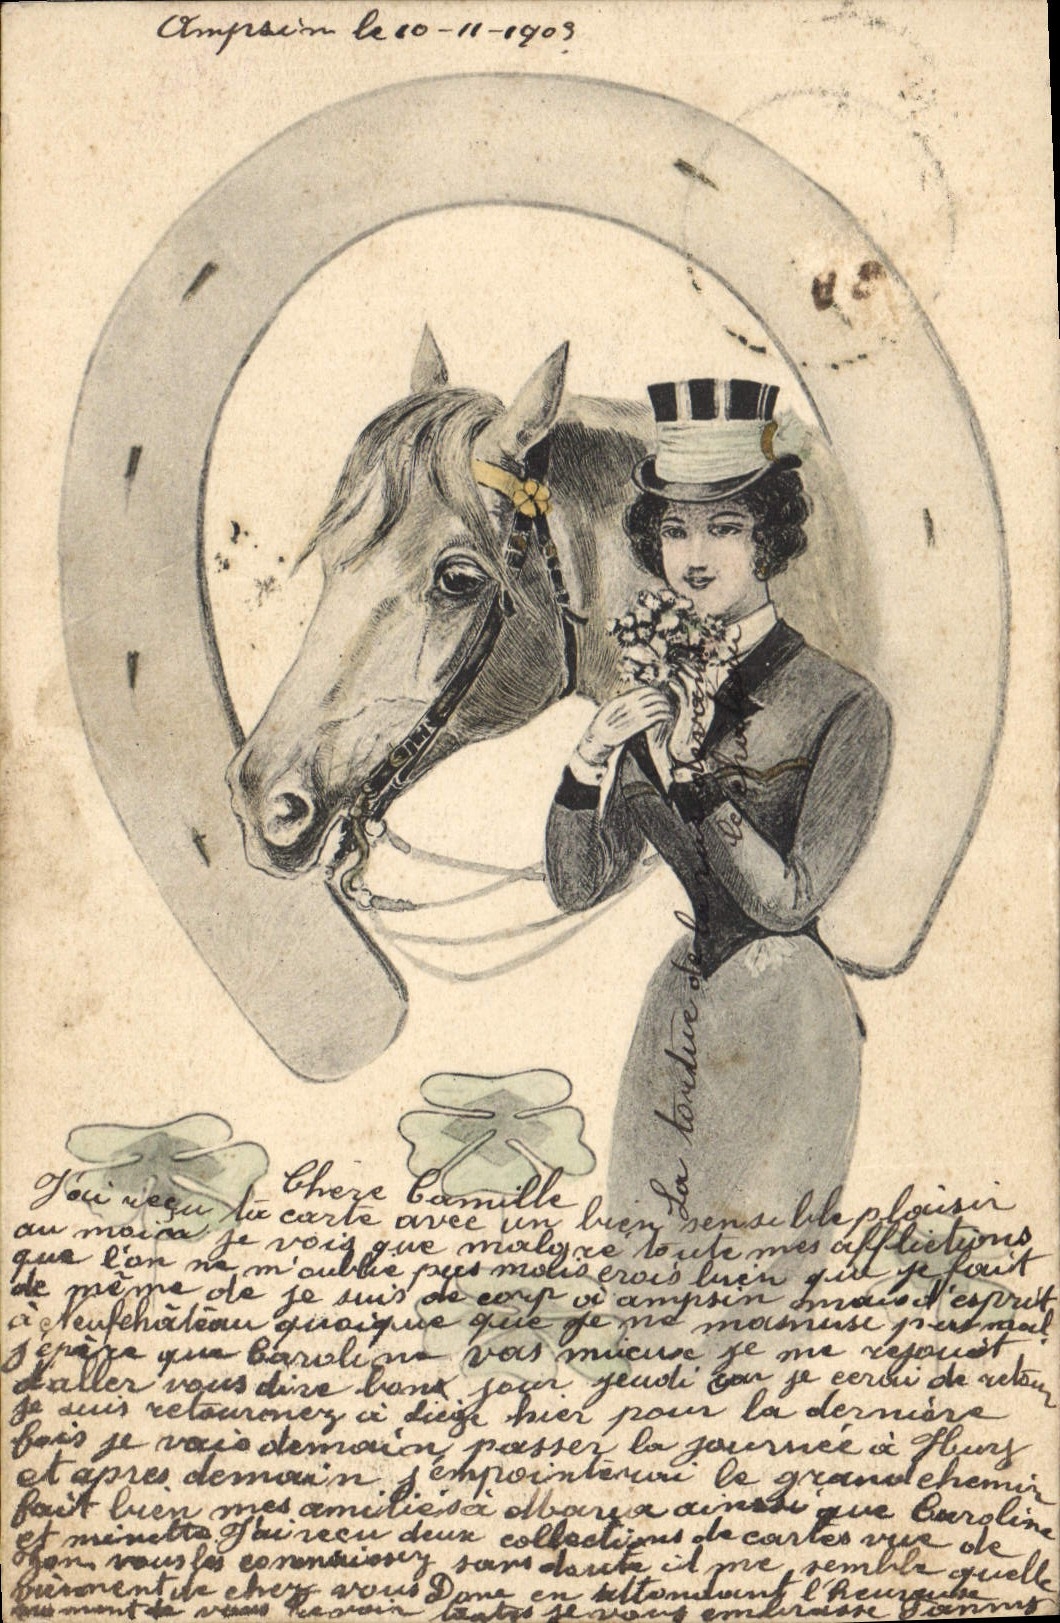 Ampsin le 10-11-1903
Chère Camille
J'ai reçu ta carte avec un bien sensible plaisir
au moin je vois que malgré toute mes afflictions
que l'on ne m'oublie pas mais crois bien que je fait
de même de je suis de corp a ampsin mais d'esprit
à Neufchâteau quoique que je ne mamuse pas mal
j'épère que Caroline vas mieux je me rejouit
d'aller vous dire bon jour jeudi car je cerai de retour
je suis retournez a Liège hier pour la dernière
fois je vais demain passer la journée à Huy
et apres demain j'empointerai le grand chemin
fait bien mes amitiés à Maria ainssi que Caroline
et minette J'ai reçu deux collections de cartes vue de
vous les connaissez sans doute il me semble quelle
viennent de chez vous Donc en attendant l'heureuse
moment de vous revoir toutes je vous embrasse Fanny
La tordue de la
le